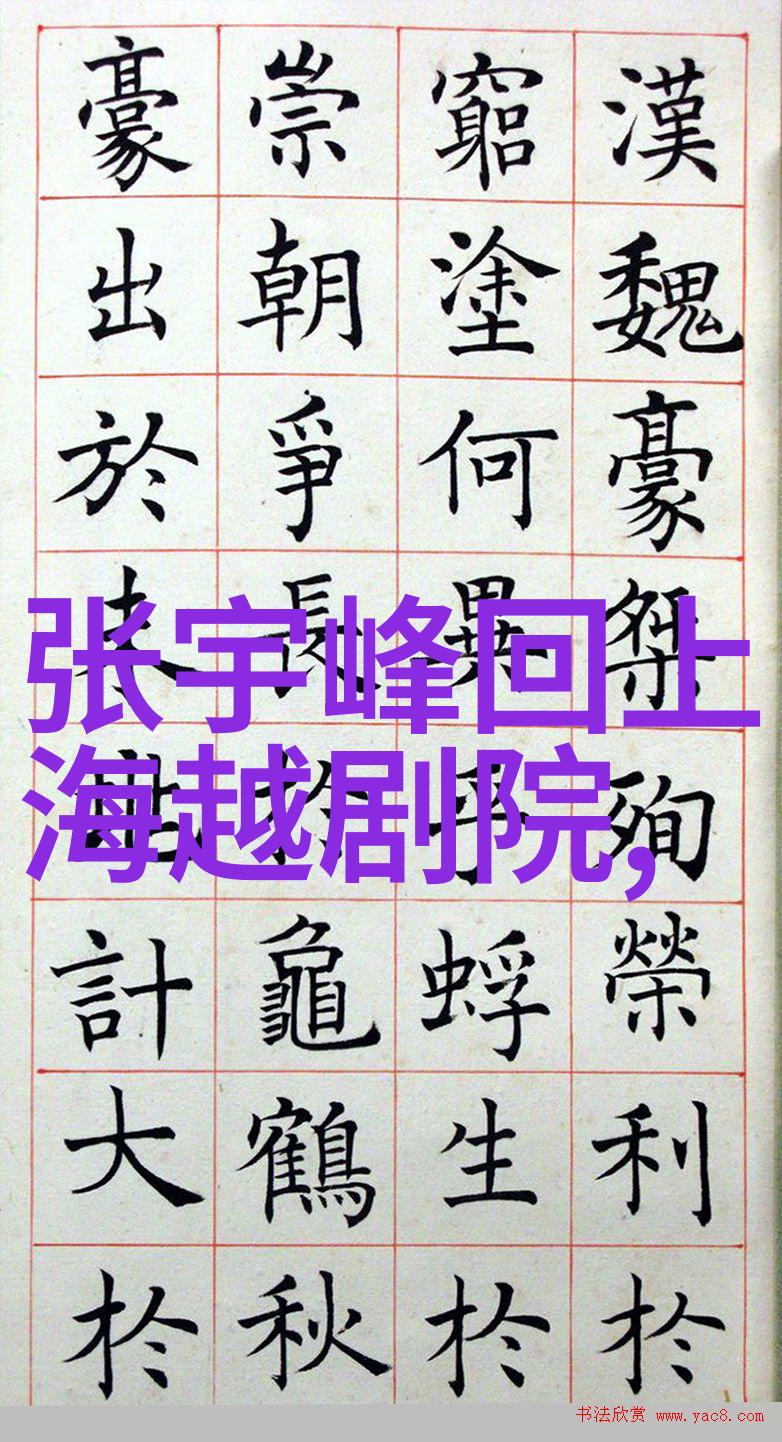 漢魏豪桀殉榮利扵
窮塗何異乎蜉生扵
崇朝爭長扵龜鶴秋
豪出於計大扵
张宇峰回上
海越剧院,
书法欣赏 www.yac8.com